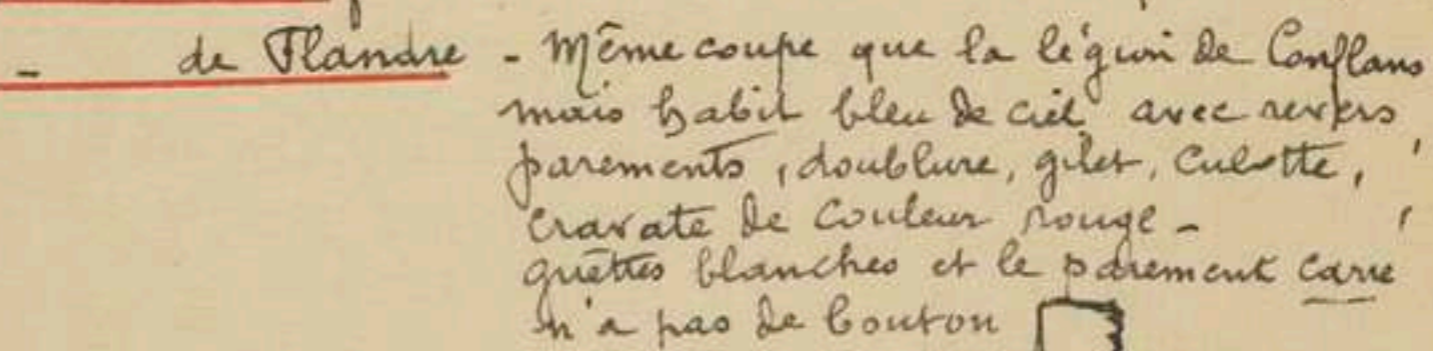 - de Flandre - Même coupe que la légion de Conflans
mais habit bleu de ciel avec revers
parements, doublure, gilet, culotte,
cravate de couleur rouge -
guêttes blanches et le parement carré
n'a pas de bouton